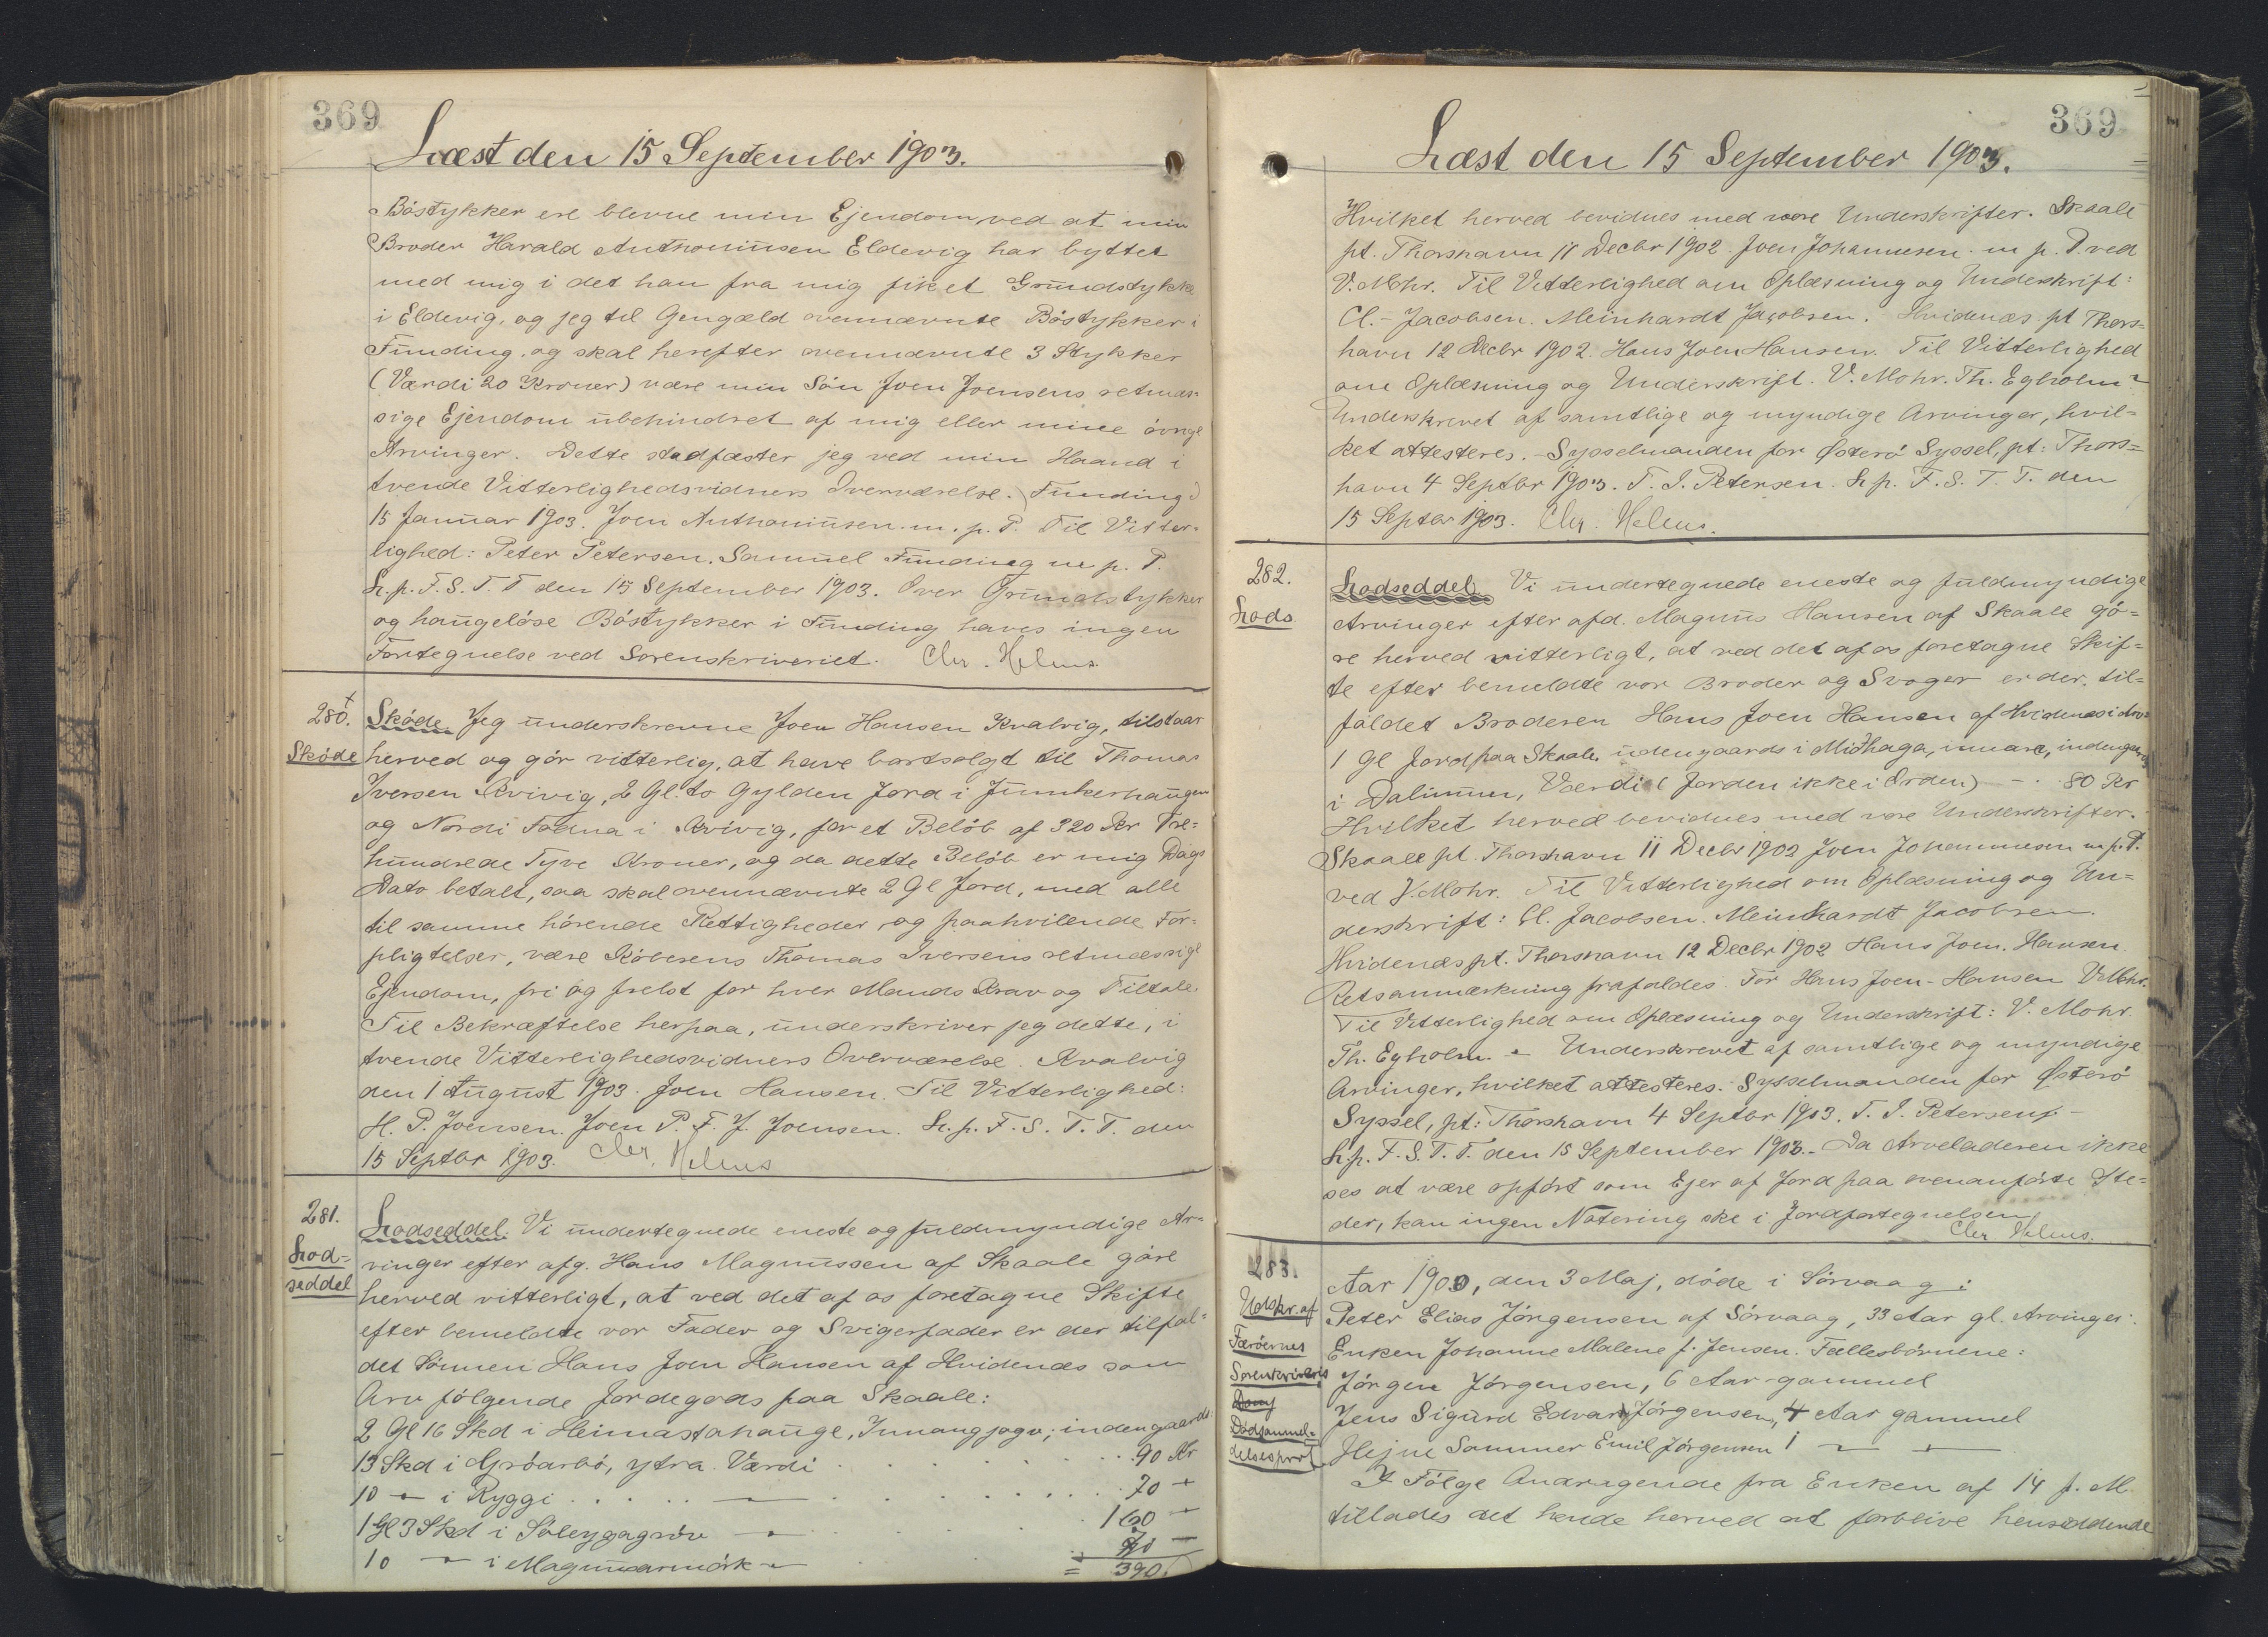 369
Læst den 15 September 1903.
Bøstykker ere blevne min Ejendom ved at min
Broder Harald Anthoniusen Eldevig har byttet
med mig i det han fra mig fik et Grundstykke
i Eldevig, og jeg til Gengæld ovennævnte Bøstykker i
Funding, og skal herefter ovennævnte 3 Stykker
(Værdi 20 Kroner) være min Søn Joen Joensens retmæs-
sige Ejendom ubehindret af mig eller mine øvrige
Arvinger. Dette stadfæster jeg ved min Haand i
tvende Vitterlighedsvidners Overværelse. Funding d
15 Januar 1903. Joen Anthoniusen m. p. P. Til Vitter-
lighed: Peter Petersen. Samuel Funding m p. P.
L. p. F. S. T. T den 15 September 1903. Over Grundstykker
og haugeløse Bøstykker i Funding haves ingen
Fortegnelse ved Sorenskriveriet. Chr. Helms
280.
Skøde
Skøde. Jeg underskrevne Joen Hansen Kvalvig, tilstaar
herved og gør vitterlig, at have bortsolgt til Thomas
Iversen Kvivig, 2 Gl. to Gylden Jord i Junkerhaugen
og Nordi Fadna i Kvivig, for et Beløb af 320 Kr Tre-
hundrede Tyve Kroner, og da dette Beløb er mig Dags
Dato betalt, saa skal ovennævnte 2 Gl Jord, med alle
til samme hørende Rettigheder og paahvilende For-
pligtelser, være Køberens Thomas Iversens retmæssige
Ejendom, fri og frelst for hver Mands Krav og Tiltale.
Til Bekræftelse herpaa, underskriver jeg dette, i
tvende Vitterlighedsvidners Overværelse. Kvalvig
den 1 August 1903. Joen Hansen. Til Vitterlighed:
H. P. Joensen. Joen P. F. J. Joensen. L. p. F. S. T. T. den
15 Septbr 1903. Chr. Helms
281.
Lod-
seddel
Lodseddel. Vi undertegnede eneste og fuldmyndige Ar-
vinger efter afg. Hans Magnussen af Skaale gøre
herved vitterligt, at ved det af os foretagne Skifte
efter bemeldte vor Fader og Svigerfader er der tilfal-
det Sønnen Hans Joen Hansen af Hvidenæs som
Arv følgende Jordegods paa Skaale:
2 Gl 16 Skd i Heimastahauge, Innangjagv; indengaards
13 Skd i Gróarbø, ytra. Værdi . . . 90 Kr
10 — i Ryggi . . . — . . . 70 —
1 Gl 3 Skd i Sóleygagróv — . . . 160 —
10 — i Magnusarmørk — . . . 70 —
= 390.
369
Læst den 15 September 1903.
Hvilket herved bevidnes med vore Underskrifter. Skaale
pt. Thorshavn 11 Decbr 1902. Joen Johannesen m p. P. ved
V. Mohr. Til Vitterlighed om Oplæsning og Underskrift:
Cl. Jacobsen. Meinhardt Jacobsen. Hvidenæs pt Thors-
havn 12 Decbr 1902. Hans Joen Hansen. Til Vitterlighed
om Oplæsning og Underskrift. V. Mohr. Th. Egholm
Underskrevet af samtlige og myndige Arvinger, hvil-
ket attesteres. Sysselmanden for Østerø Syssel, pt: Thors-
havn 4 Septbr 1903. T. I. Petersen. L. p. F. S. T. T. den
15 Septbr 1903. Chr. Helms.
282.
Lods
Lodseddel Vi undertegnede eneste og fuldmyndige
Arvinger efter afd. Magnus Hansen af Skaale gø-
re herved vitterligt, at ved det af os foretagne Skif-
te efter bemeldte vor Broder og Svoger er der til-
faldet Broderen Hans Joen Hansen af Hvidenæs i Arv:
1 Gl Jord paa Skaale, udengaards i Miðhaga, innare, indengaards
i Dalinum, Værdi (Jorden ikke i Orden) — . 80 Kr
Hvilket herved bevidnes med vore Underskrifter.
Skaale pt. Thorshavn 11 Decbr 1902 Joen Johannesen m p. P.
ved V. Mohr. Til Vitterlighed om Oplæsning og Un-
derskrift: Cl. Jacobsen. Meinhardt Jacobsen.
Hvidenæs pt. Thorshavn 12 Decbr 1902 Hans Joen. Hansen.
Retsanmærkning frafaldes. For Hans Joen-Hansen V. Mohr.
Til Vitterlighed om Oplæsning og Underskrift: V. Mohr.
Th. Egholm — Underskrevet af samtlige og myndige
Arvinger, hvilket attesteres. Sysselmanden for Østerø
Syssel, pt: Thorshavn 4 Septbr 1903. T. I. Petersen. —
L. p. F. S. T. T. den 15 September 1903. — Da Arveladeren ikke
ses at være opført som Ejer af Jord paa ovenanførte Ste-
der, kan ingen Notering ske i Jordfortegnelsen
Chr Helms.
283.
Udskr. af
Færøernes
Sorenskriveris
Dødsanmel-
delsesprot.
Aar 1900, den 3 Maj, døde i Sørvaag:
Peter Elias Jørgensen af Sørvaag, 33 Aar gl. Arvinger:
Enken Johanne Malene f. Jensen. Fællesbørnene:
Jørgen Jørgensen, 6 Aar gammel
Jens Sigurd Edvard Jørgensen, 4 Aar gammel
Hejne Sommer Emil Jørgensen 1 — —
I Følge Andragende fra Enken af 14 f. M.
tillades det hende herved at forblive hensiddende